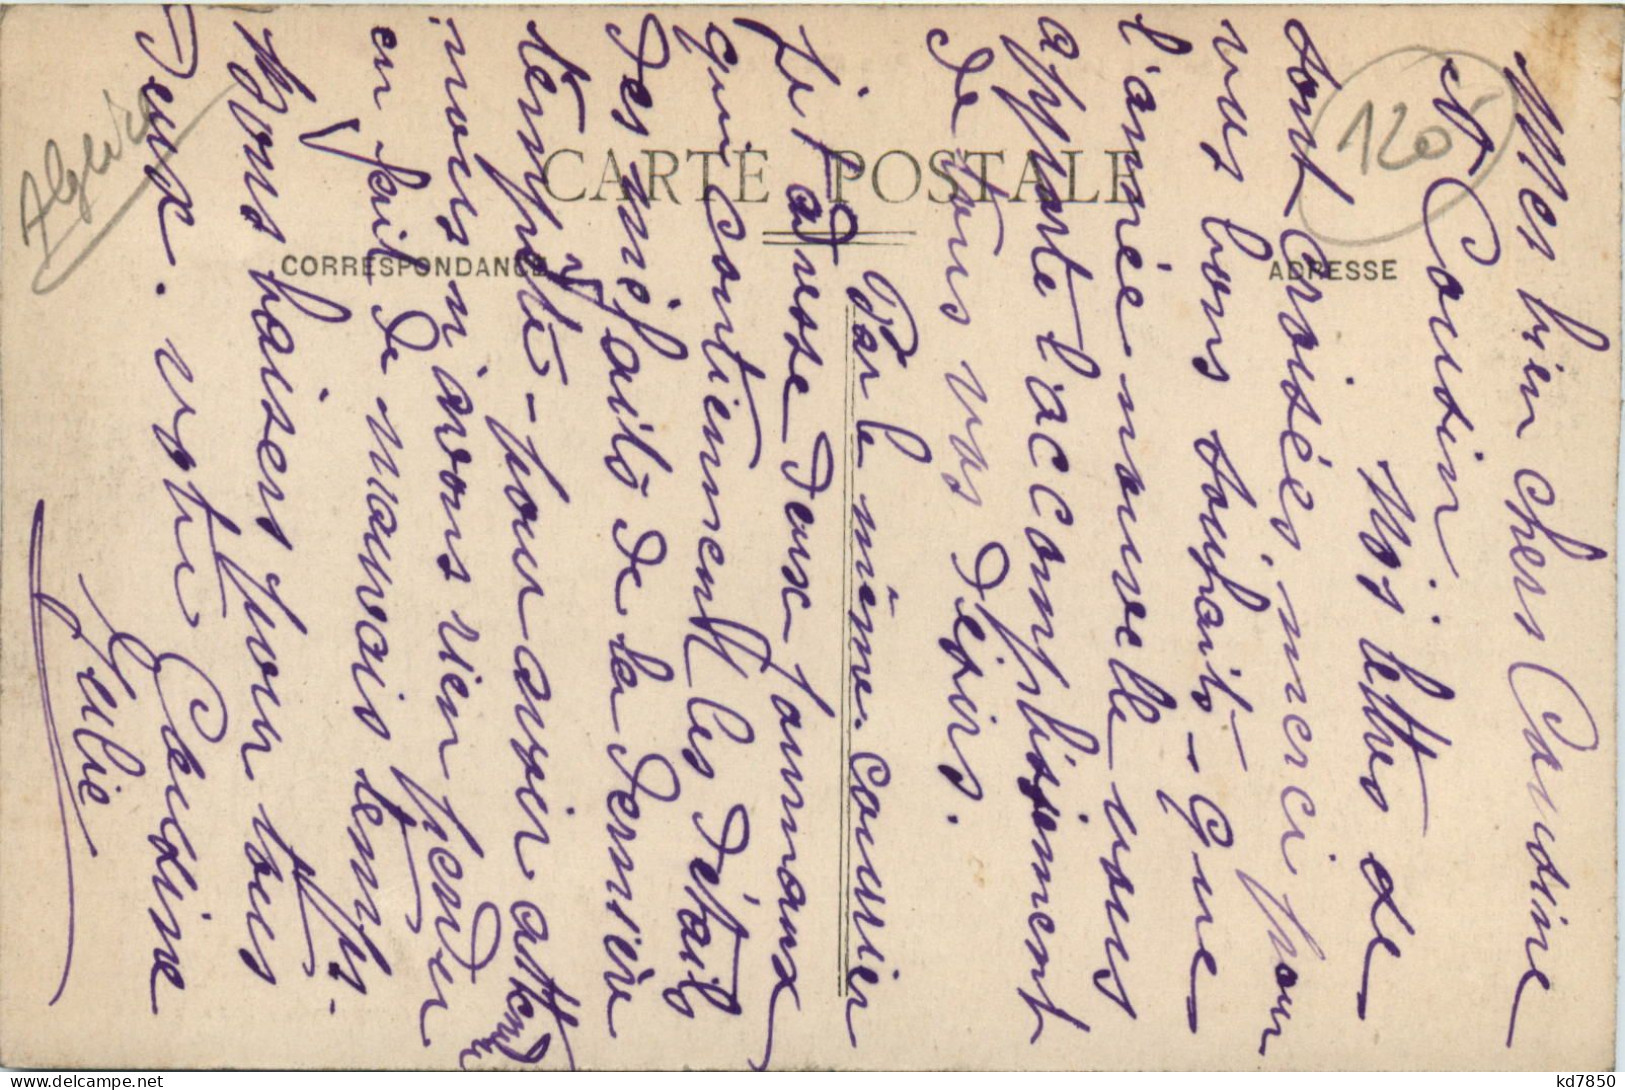 Mes bien chers Cousine
et Cousin
Nos lettres se
sont croisées, merci pour
vos bons souhaits - que
l'année nouvelle vous
apporte l'accomplissement
de tous vos désirs.
Par le même courrier
je t'adresse deux journaux
qui contiennent les détails
des méfaits de la dernière
tempête - pour avoir attendu
nous n'avons rien perdu
en fait de mauvais temps.
Bons baisers pour tous
deux. votre Cousine
Julie
CARTE POSTALE
CORRESPONDANCE
ADRESSE
120
Algérie
kd7850